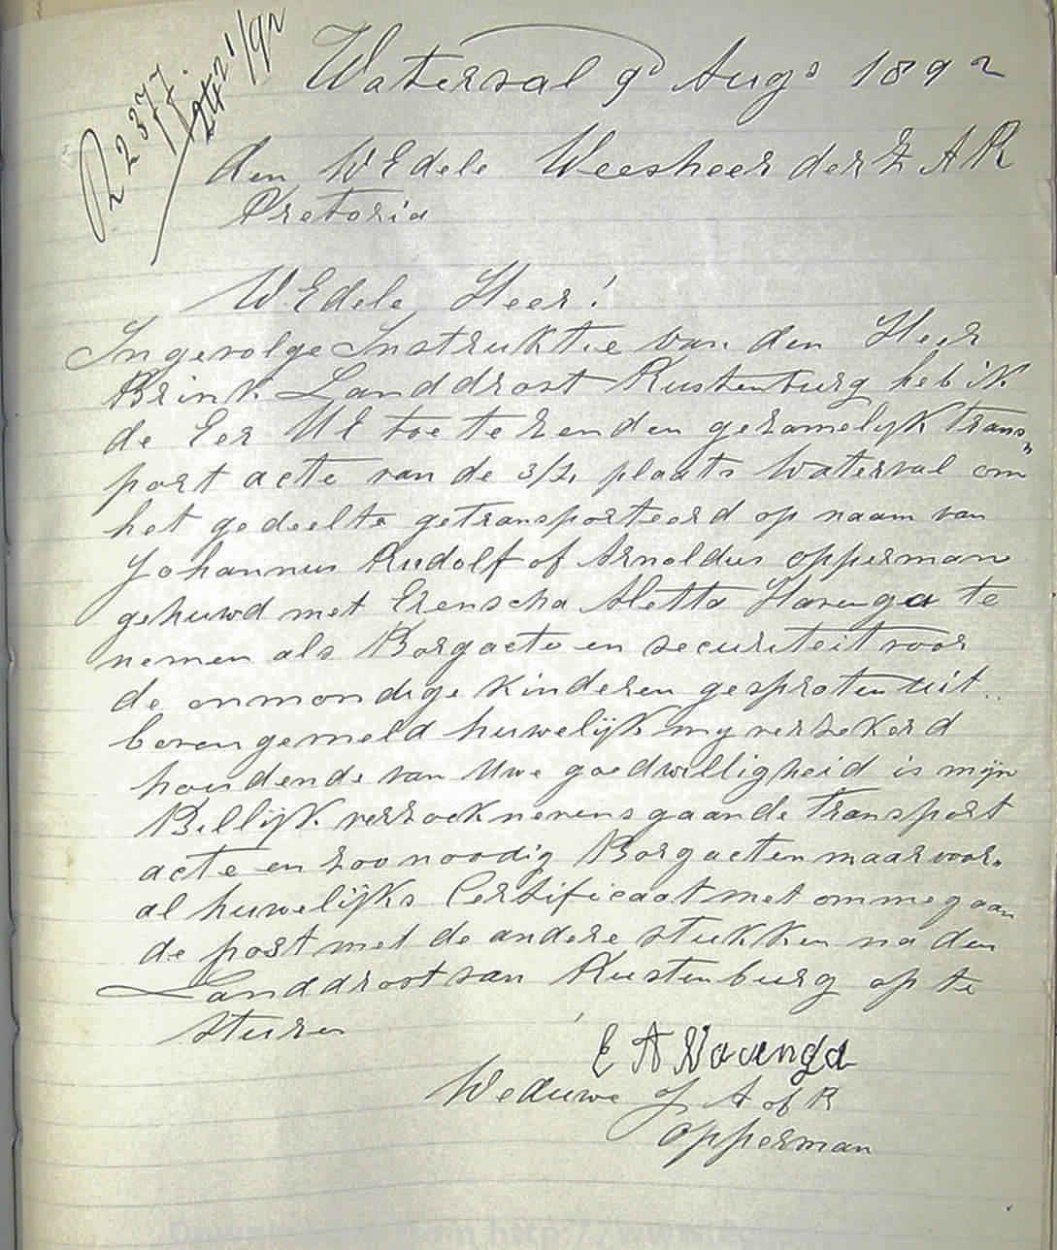 R2377/92
Waterval 9d Augs 1892
Aan WEdele Weesheer der Z A R
Pretoria
WEdele Heer!
Ingevolge Instruktie van den Heer
Brink Landdrost Rustenburg heb ik
de Eer UE toe te zenden gezamelyk trans"
port acte van de plaats Waterval om
het gedeelte getransporteerd op naam van
Johannus Rudolf of Arnoldus Opperman
gehuwd met Erenscha Aletta Havenga te
nemen als Borgacte en securiteit voor
de onmondige kinderen gesproten uit
bovengemeld huwelijk my verzekerd
houdende van Uwe goedwilligheid is mijn
Billijk verzoek nevensgaande Transport
acte en zoo noodig Borgacten maar voor
al huwelijks Certificaat met ommegaan
de post met de andere stukken na den
Landdrost van Rustenburg op te
sturen
E A Havenga
Weduwe J A of R
Opperman